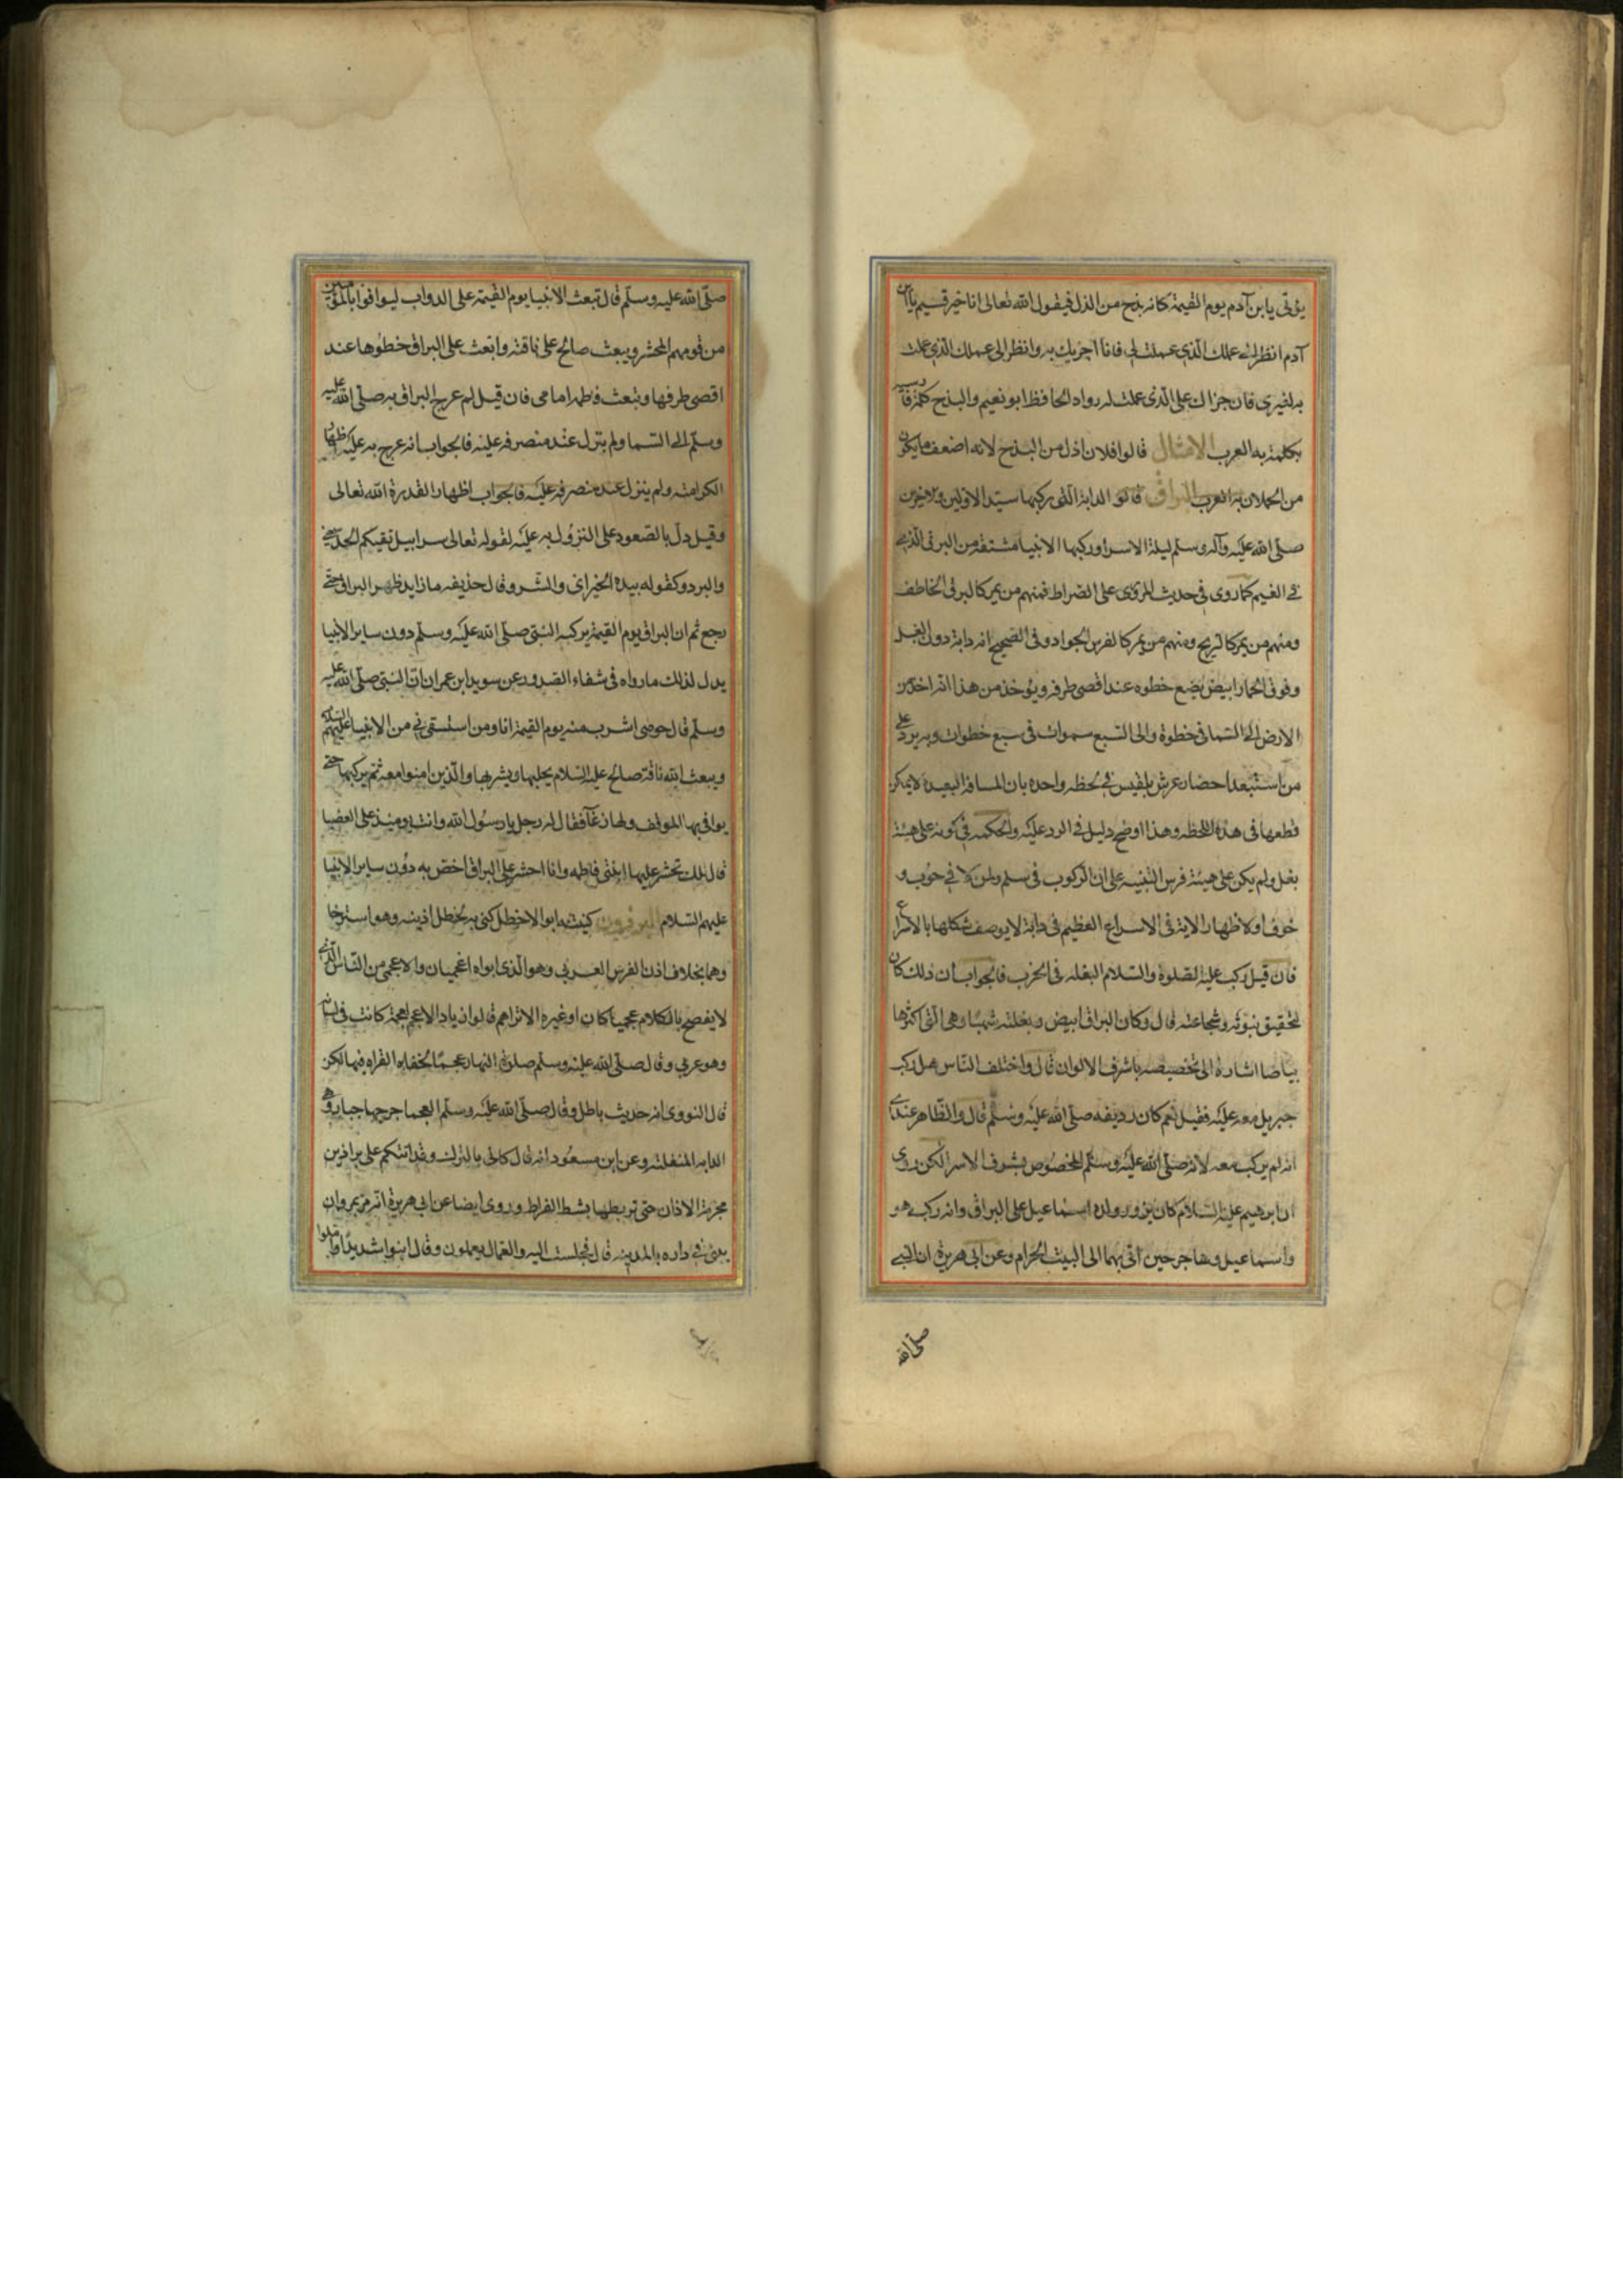 يؤتى يا بن آدم يوم القيمة كانه بذج من الذل فيقول الله تعالى انا خير قسيم يا ابن
آدم انظر الى عملك الذى عملت لى فانا اجزيك به وانظر الى عملك الذى عملت
به لغيرى فان جزاك على الذى عملت له رواه الحافظ ابو نعيم والبذج كلمة فارسيه
تكلمت به العرب الامثال قالوا فلان اذل من البذج لانه اضعف ما يكون
من الحملان به العرب البراق قالو الدابة التى ركبها سيد الاولين ولاخرين
صلى الله عليه وآله وسلم ليلة الاسرا وركبها الانبيا مشتقة من البرق الذى
فى الغيم كما روى فى حديث المروى على الصراط فمنهم من يمر كالبرق الخاطف
ومنهم من يمر كالريح ومنهم من يمر كالفرس الجواد وفى الصحيح انه دابة دون البغل
وفوق الحمار ابيض يضع خطوه عند اقصى طرفه ويؤخذ من هذا انه اخذ من
الارض الى السما فى خطوة والى السبع سموات فى سبع خطوات وبه يرد على
من استبعد احضار عرش بلقيس فى لحظه واحده بان المسافة البعيدة لا يمكن
قطعها فى هذه اللحظه وهذا اوضح دليل فى الرد عليه والحكمه فى كونه على هيئة
بغل ولم يكن على هيئة فرس التنبيه على ان الركوب فى سلم ولمن لا فى حوب و
خوف او لاظهار الاية فى الاسراع العظيم فى دابة لا يوصف شكلها بالاسراع
فان قيل ركب عليه الصلوة والسلام البغله فى الحرب فالجواب ان ذلك كان
لتحقيق نبوته وشجاعته قال وكان البراق ابيض وبغلته شهبا وهى التى اكثرها
بياضا اشارة الى تخصيصه باشرف الالوان قال واختلف الناس هل ركب
جبريل معه عليه فقيل نعم كان رديفه صلى الله عليه وسلم قال والظاهر عندى
انه لم يركب معه لانه صلى الله عليه وسلم المخصوص بشرف الاسرا لكن روى
ان ابرهيم عليه السلام كان يزور ولده اسماعيل على البراق وانه ركب هو
واسماعيل وهاجر حين اتى بهما الى البيت الحرام وعن ابى هريرة ان النبى
صلى الله
صلى الله عليه وسلم قال تبعث الانبيا يوم القيمة على الدواب ليوافوا بالمؤمنين
من قومهم المحشر ويبعث صالح على ناقته وابعث على البراق خطوها عند
اقصى طرفها وتبعث فاطمه امامى فان قيل لم عرج البراق به صلى الله عليه
وسلم الى السما ولم ينزل عند منصرفه عليه فالجواب انه عرج به عليه لاظهار
الكرامته ولم ينزل عند منصرفه عليه فالجواب اظهارا لقدرة الله تعالى
وقيل دل بالصعود على النزول به عليه لقوله تعالى سرابيل تقيكم الحر يعنى
والبرد وكقوله بيده الخير اى والشر وقال حذيفه ما زايد ظهر البراق حتى
رجع ثم ان البراق يوم القيمة يركبه النبى صلى الله عليه وسلم دون ساير الانبيا
يدل لذلك ما رواه فى شفاء الصدور عن سويد ابن عمران ان النبى صلى الله عليه
وسلم قال حوضى اشرب منه يوم القيمة انا ومن استسقى نى من الانبيا عليهم السلام
ويبعث الله ناقة صالح عليه السلام يحلبها ويشربها والذين امنوا معه ثم يركبها حتى
يوافى بها الموقف ولها رغآ فقال له رجل يا رسول الله وانت يوميذ على العضبا
قال تلك تحشر عليها ابنتى فاطمه وانا احشر على البراق اختص به دون ساير الانبيا
عليهم السلام البرذون كنيته ابو الاخطل كنى به لخطل اذينه وهو استرخا
وهما بخلاف اذن الفرس العربى وهو الذى ابواه اعجميان والاعجمى من الناس الذى
لا يفصح بالكلام عجميا كان او غيره الا تراهم قالوا زياد الاعجم لعجمة كانت فى لسانه
وهو عربى وقال صلى الله عليه وسلم صلوة النهار عجما لخفاء القراه فيها لكن
قال النووى انه حديث باطل وقال صلى الله عليه وسلم العجما جرحها جبار وهى
الدابه المنفلته وعن ابن مسعود انه قال كانى بالترك وقد اتتكم على براذين
مجزمة الاذان حتى تربطها بشط الفراط وروى ايضا عن ابى هريرة انه مر بمروان
يبنى فى داره بالمدينه قال فجلست اليه والعمال يعملون وقال ابنوا شديدا واملوا